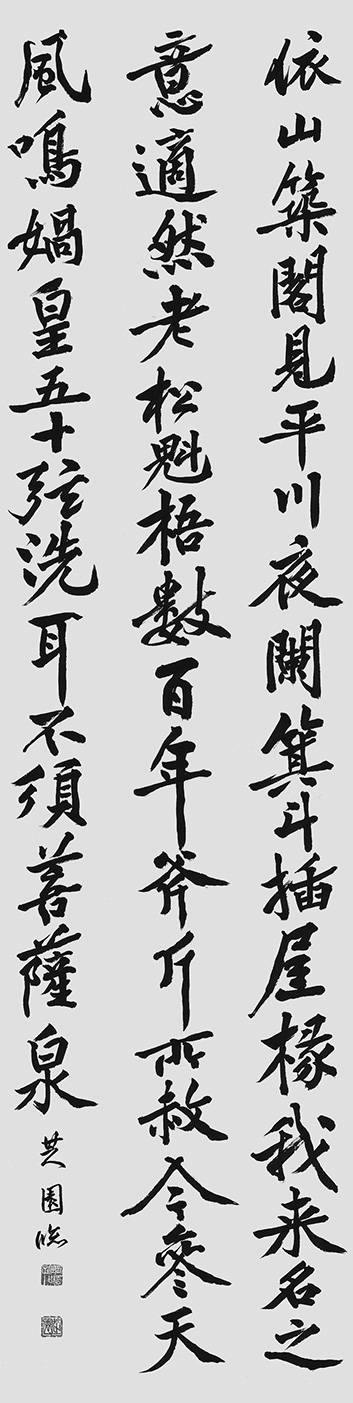 依山築閣見平川夜闌箕斗插屋椽我来名之
意適然老松魁梧數百年斧斤所赦今參天
風鳴媧皇五十弦洗耳不須菩薩泉
園臨